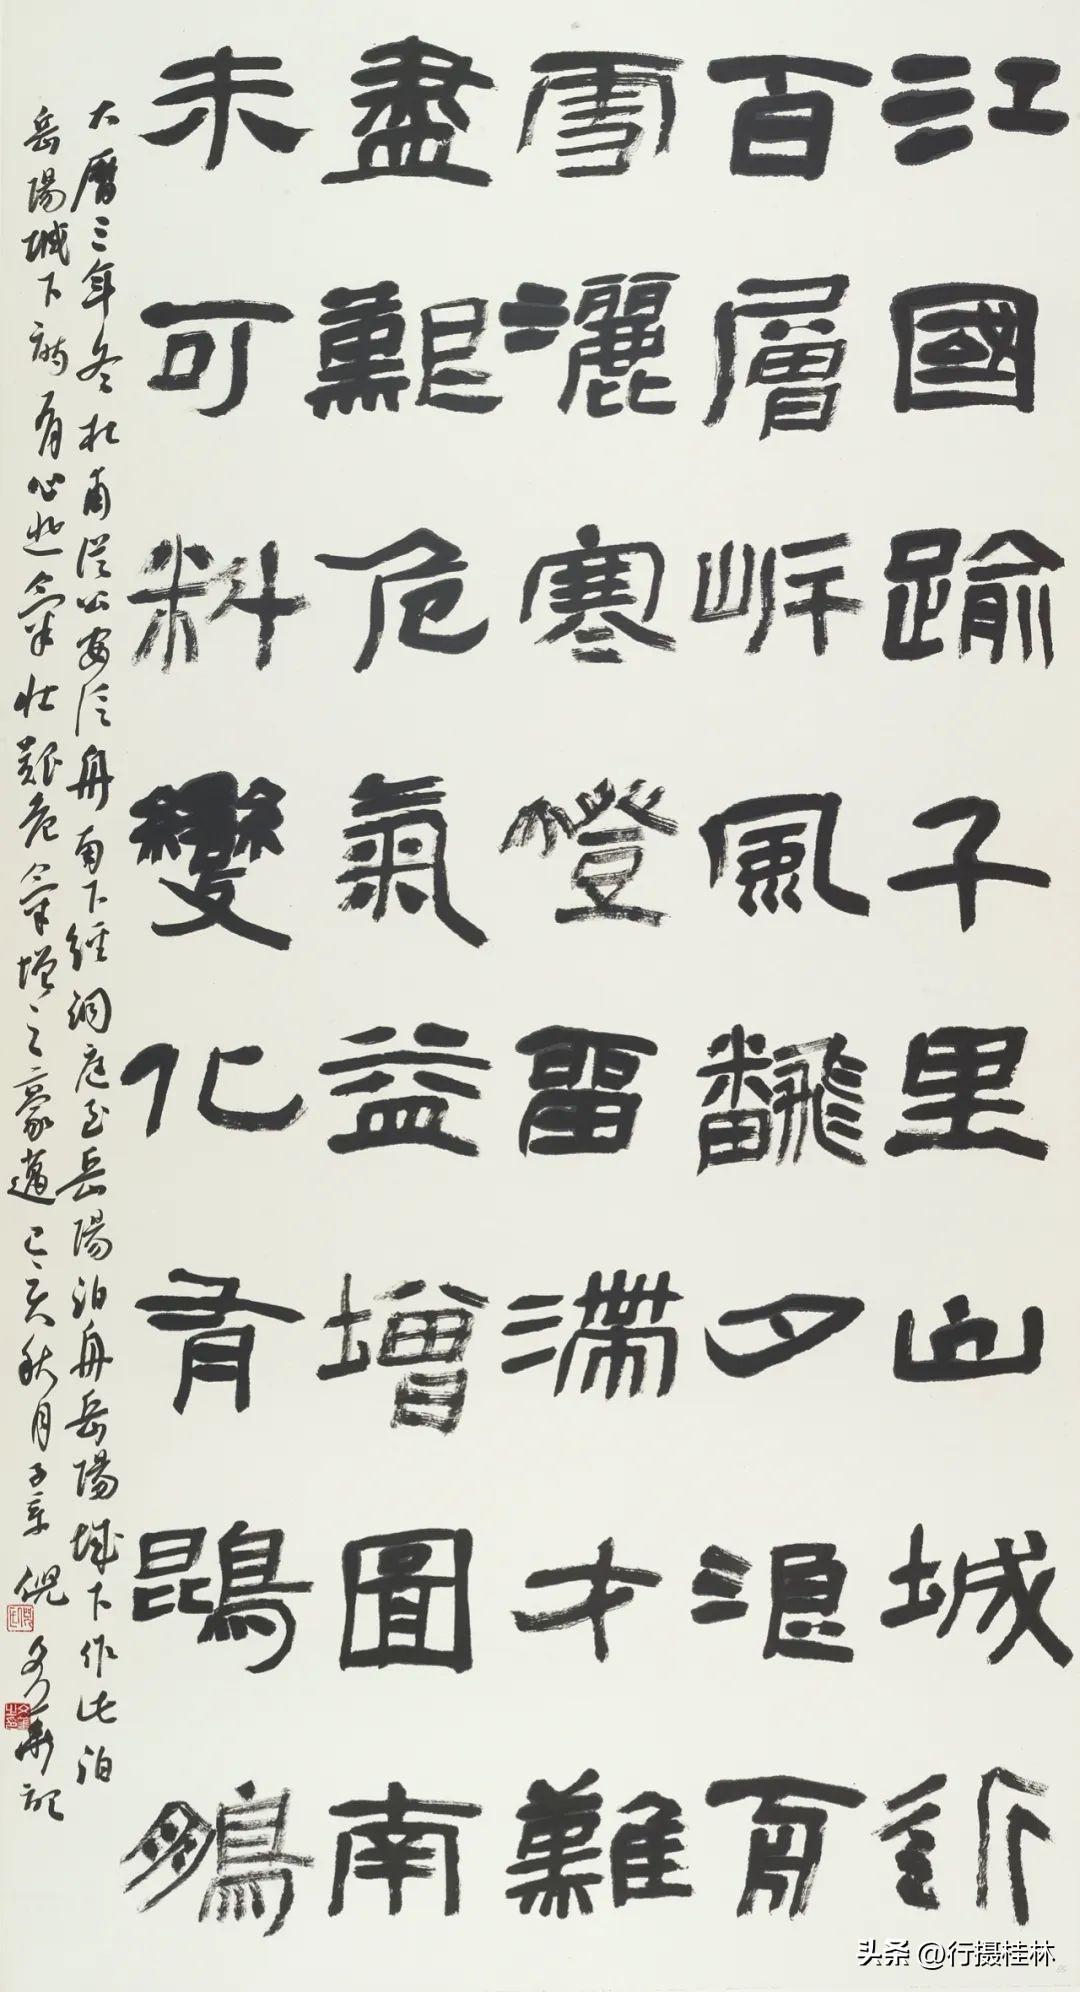 江國踰千里山城近
百層岸風飜夕浪舟
雪灑寒燈留滯才難
盡艱危氣益增圖南
未可料變化有鵾鵬
大曆三年冬杜甫從公安泛舟南下經洞庭至岳陽泊舟岳陽城下作此泊
岳陽城下詩有心悲氣壯艱危氣增之豪邁己亥秋月 倪文華記
头条 @行摄桂林